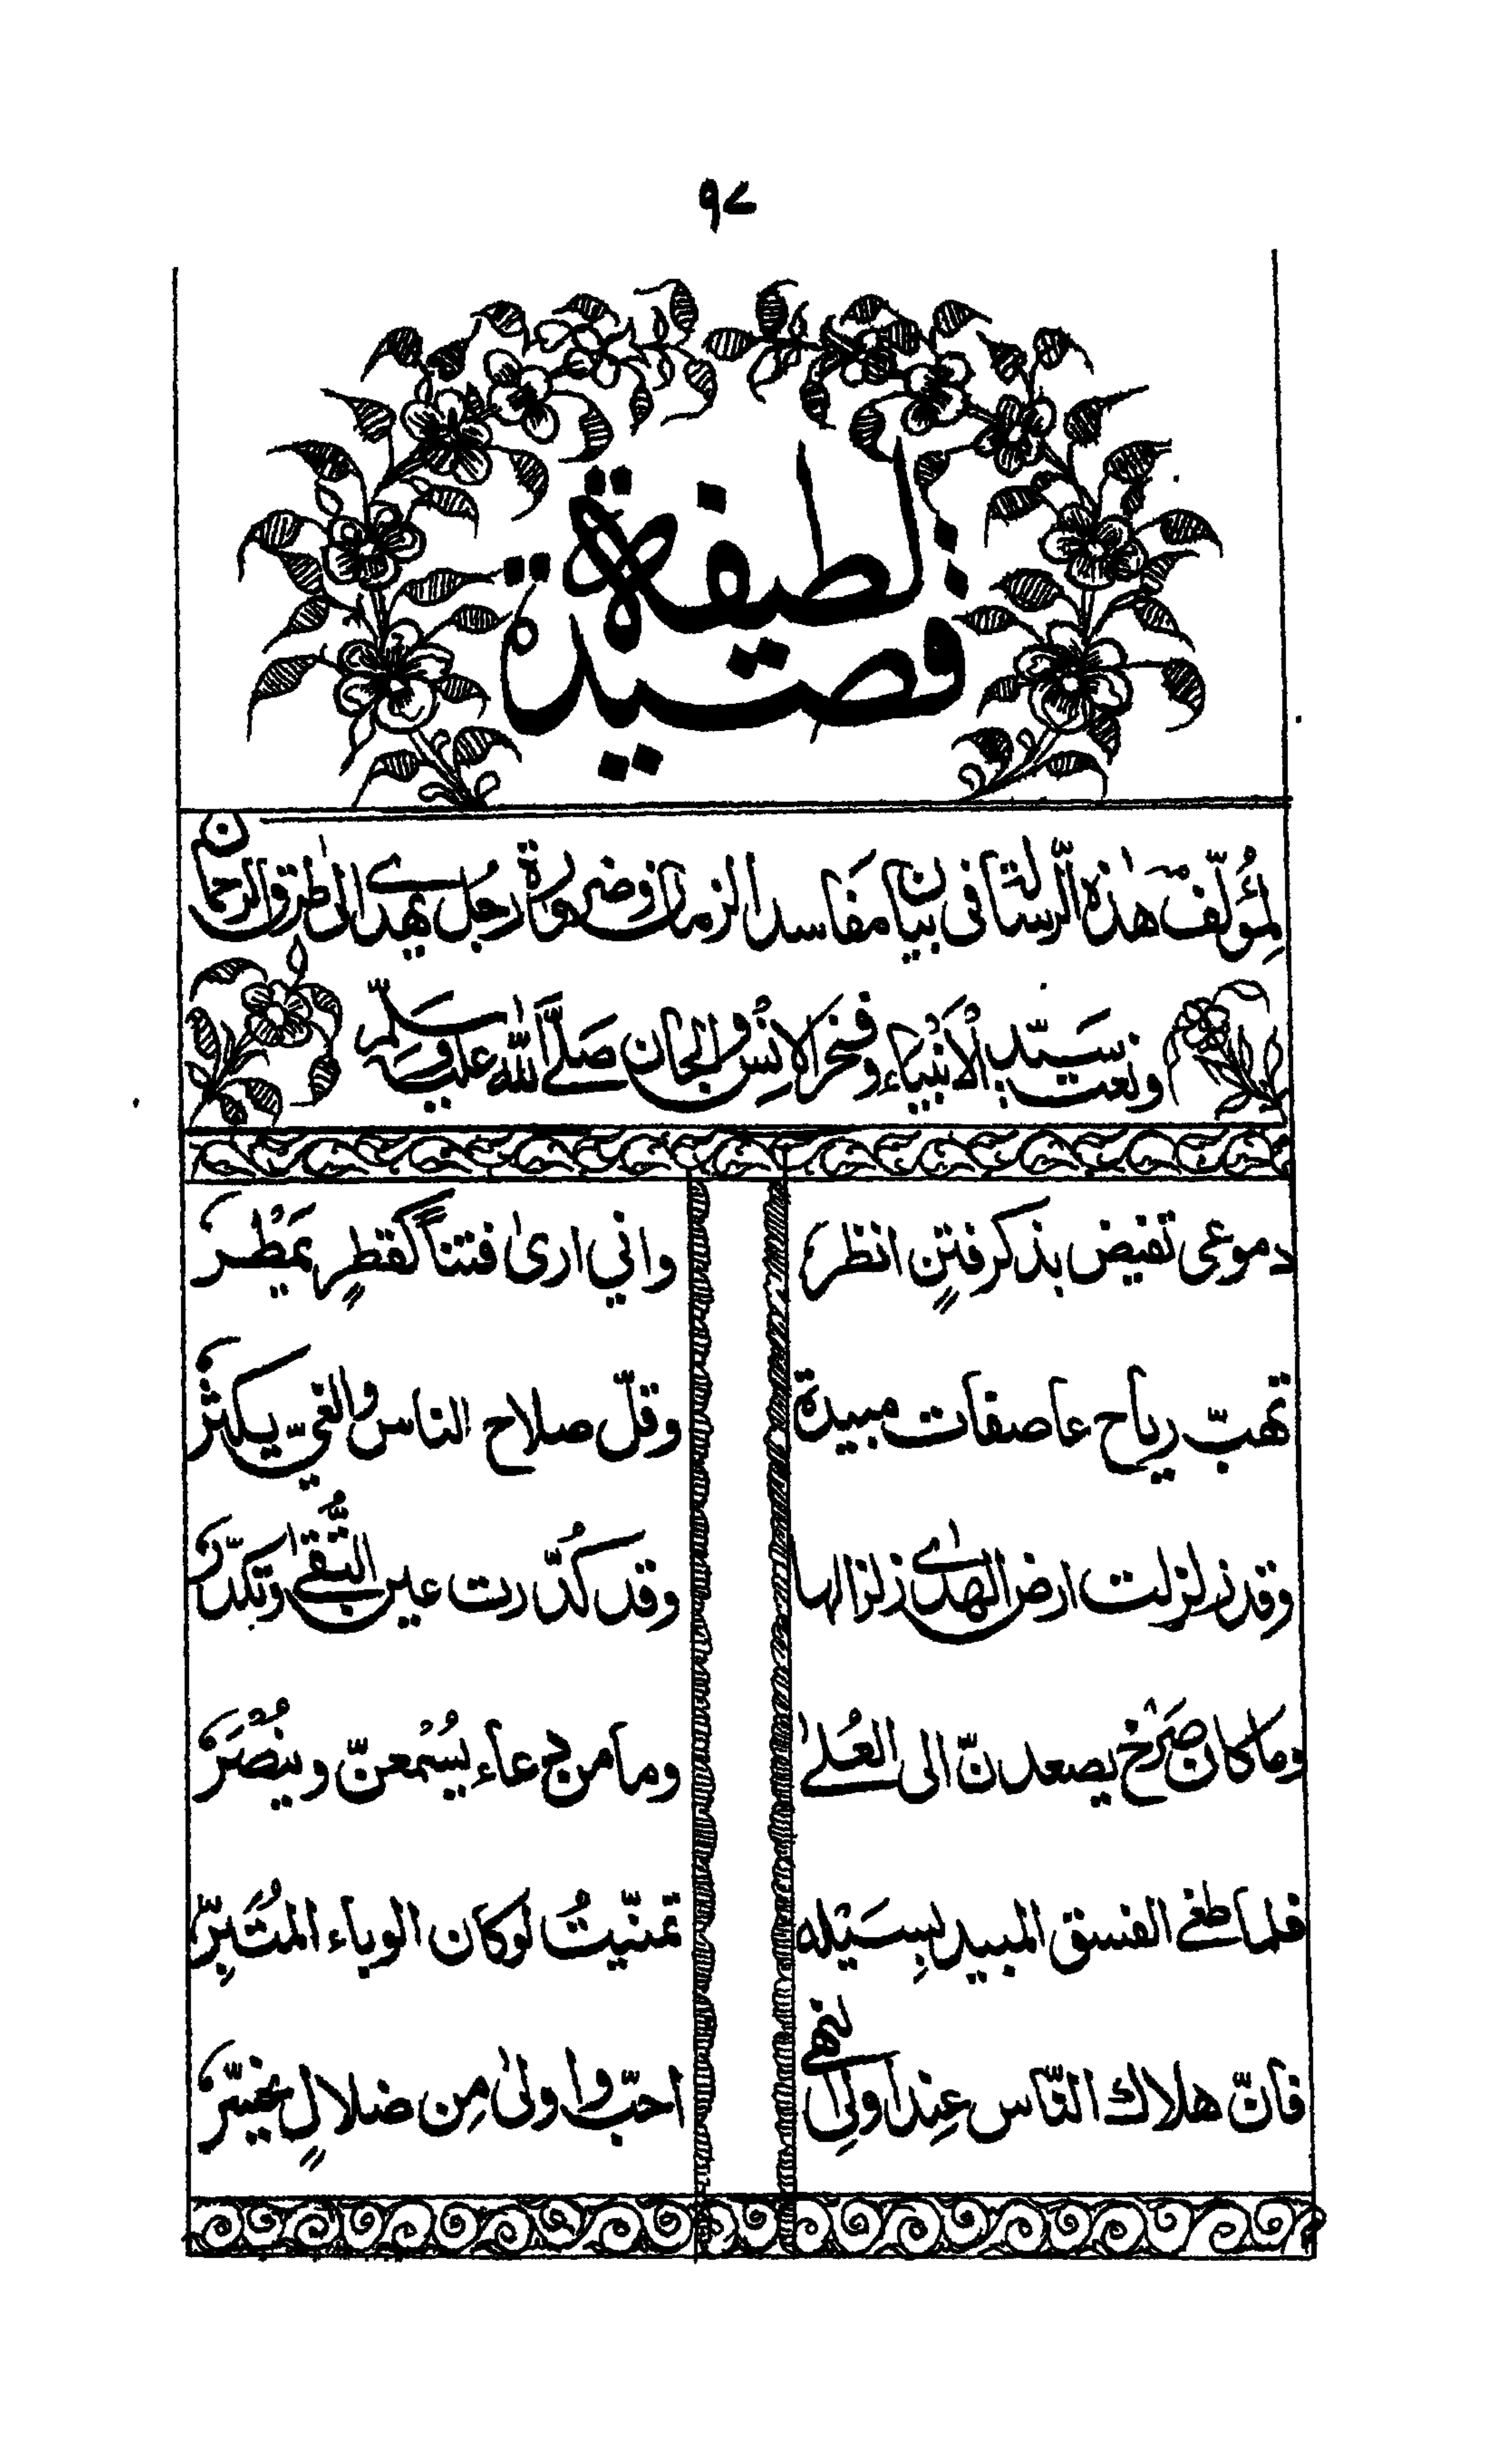 ۹۷
قصيدة لطيفة
لِمُؤلّف هٰذه الرسالة فى بيان مفاسد الزمان وضرورة رجُل يهدى الىٰ طرق الرحمان
ونعت سَيّد الْأَنْبِيَاء وفخر الانْس والجان صَلَّى اللّٰه عليه وسَلّم
دموعى تفيض بذكر فتنٍ انظرُ وانى ارىٰ فتناً كقطرٍ يَمْطُرُ
تهبّ رياح عاصفات مبيدة وقلّ صلاح الناس والغىّ يكثرُ
وقد زلزلت ارض الهدى زلزالها وقد كُدّرت عين التُّقىٰ وتكدّرُ
وما كان صَرْخ يصعدنّ الى العُلىٰ وما من دعاء يُسْمعنّ ويُنْصَرُ
فلما طغى الفسق المبيد بِسَيْله تمنّيتُ لو كان الوباء المُتَبِّرُ
فانّ هلاك النّاس عِند اولِى النهى احبّ واولىٰ مِن ضلالٍ يخسّرُ